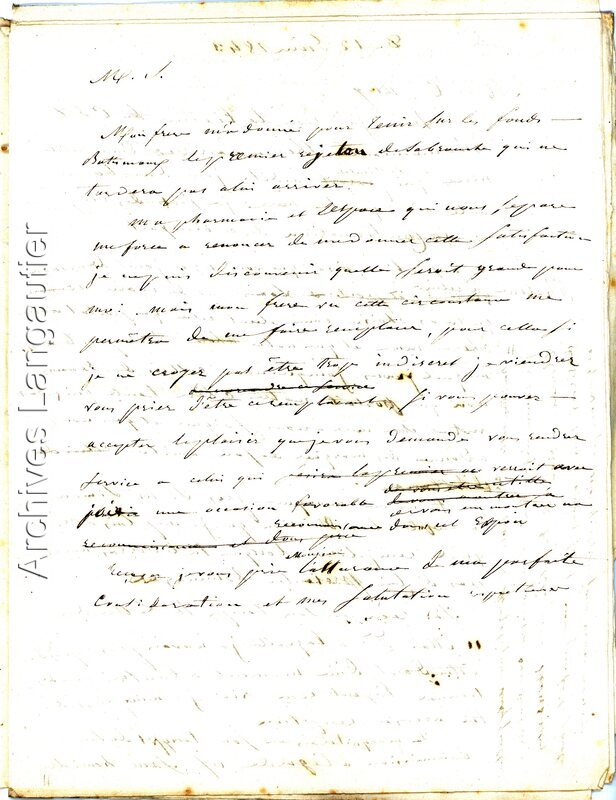 Mr. S.
Mon frere m'a donné pour tenir sur les fonds
Batismaux le premier rejeton de sa branche qui ne
tardera pas a lui arriver.
ma pharmacie et l'espace qui nous separe
me force a renoncer de me donner cette satisfaction
je ne puis disconvenir quelle seroit grande pour
moi. mais mon frere vu cette circonstance me
permetra de me faire remplacer, pour cella si
je ne croyez pas être trop indiscret je viendrez
vous prier d'être ce remplacant. Si vous pouvez
accepter le plaisir que je vous demande vous rendrez
service a celui qui verroit avec
joie une occasion favorable de vous en montrer sa
reconnaissance dans cet espoir
Monsieur
recevez je vous prie l'assurance de ma parfaite
Consideration et mes salutation
Archives Langautier